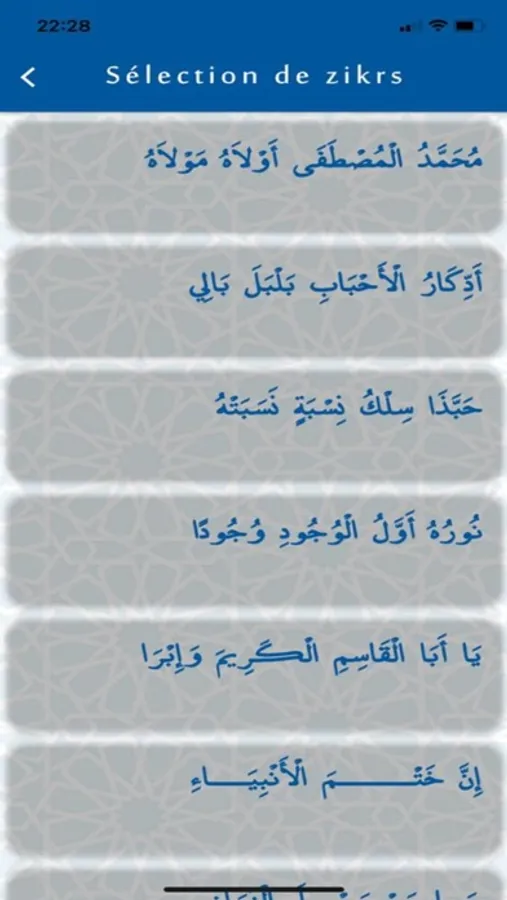 22:28
Sélection de zikrs
مُحَمَّدُ الْمُصْطَفَى أَوْلَاهُ مَوْلَاهُ
أَدِّكَارُ الْأَحْبَابِ بَلْبَلَ بَالِي
حَبَّذَا سِلْكُ نِسْبَةٍ نَسَبَتْهُ
نُورُهُ أَوَّلُ الْوُجُودِ وُجُودًا
يَا أَبَا الْقَاسِمِ الْكَرِيمَ وَإِبْرَا
إِنَّ خَتْـــــــمَ الْأَنْبِيَـــاءِ